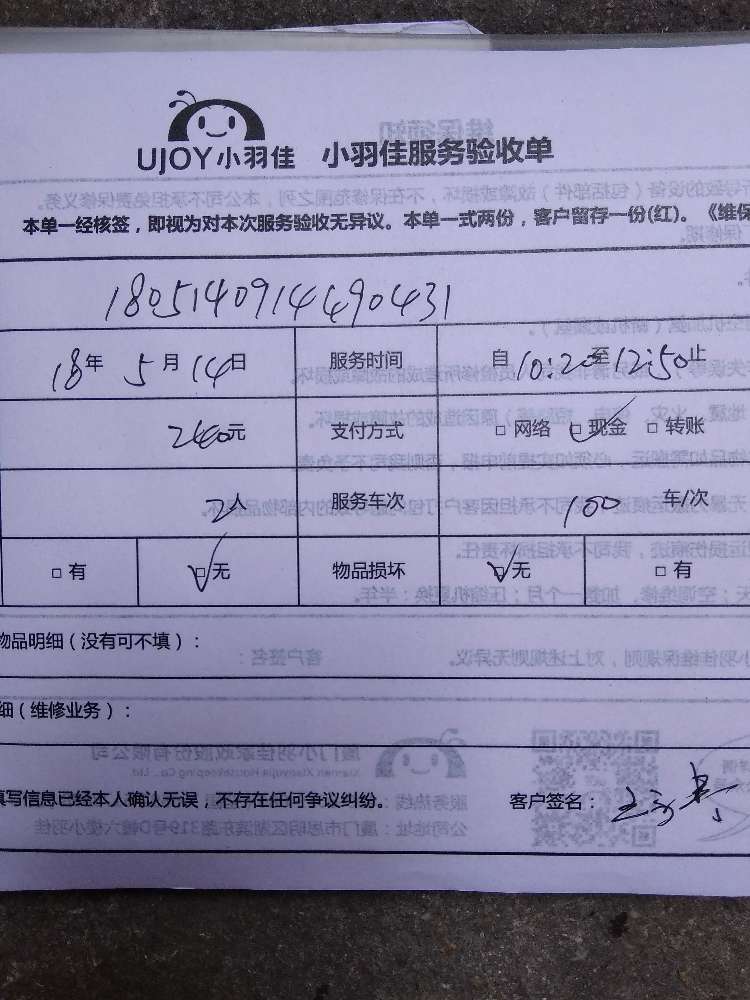 UJOY小羽佳 小羽佳服务验收单
本单一经核签，即视为对本次服务验收无异议。本单一式两份，客户留存一份(红)。《维保
1805140914490431
18年 5月 14日 服务时间 自10:20至12:50止
240元 支付方式 □ 网络 ☑ 现金 □ 转账
2人 服务车次 100 车/次
□ 有 ☑ 无 物品损坏 ☑ 无 □ 有
物品明细（没有可不填）：
细（维修业务）：
填写信息已经本人确认无误，不存在任何争议纠纷。 客户签名：